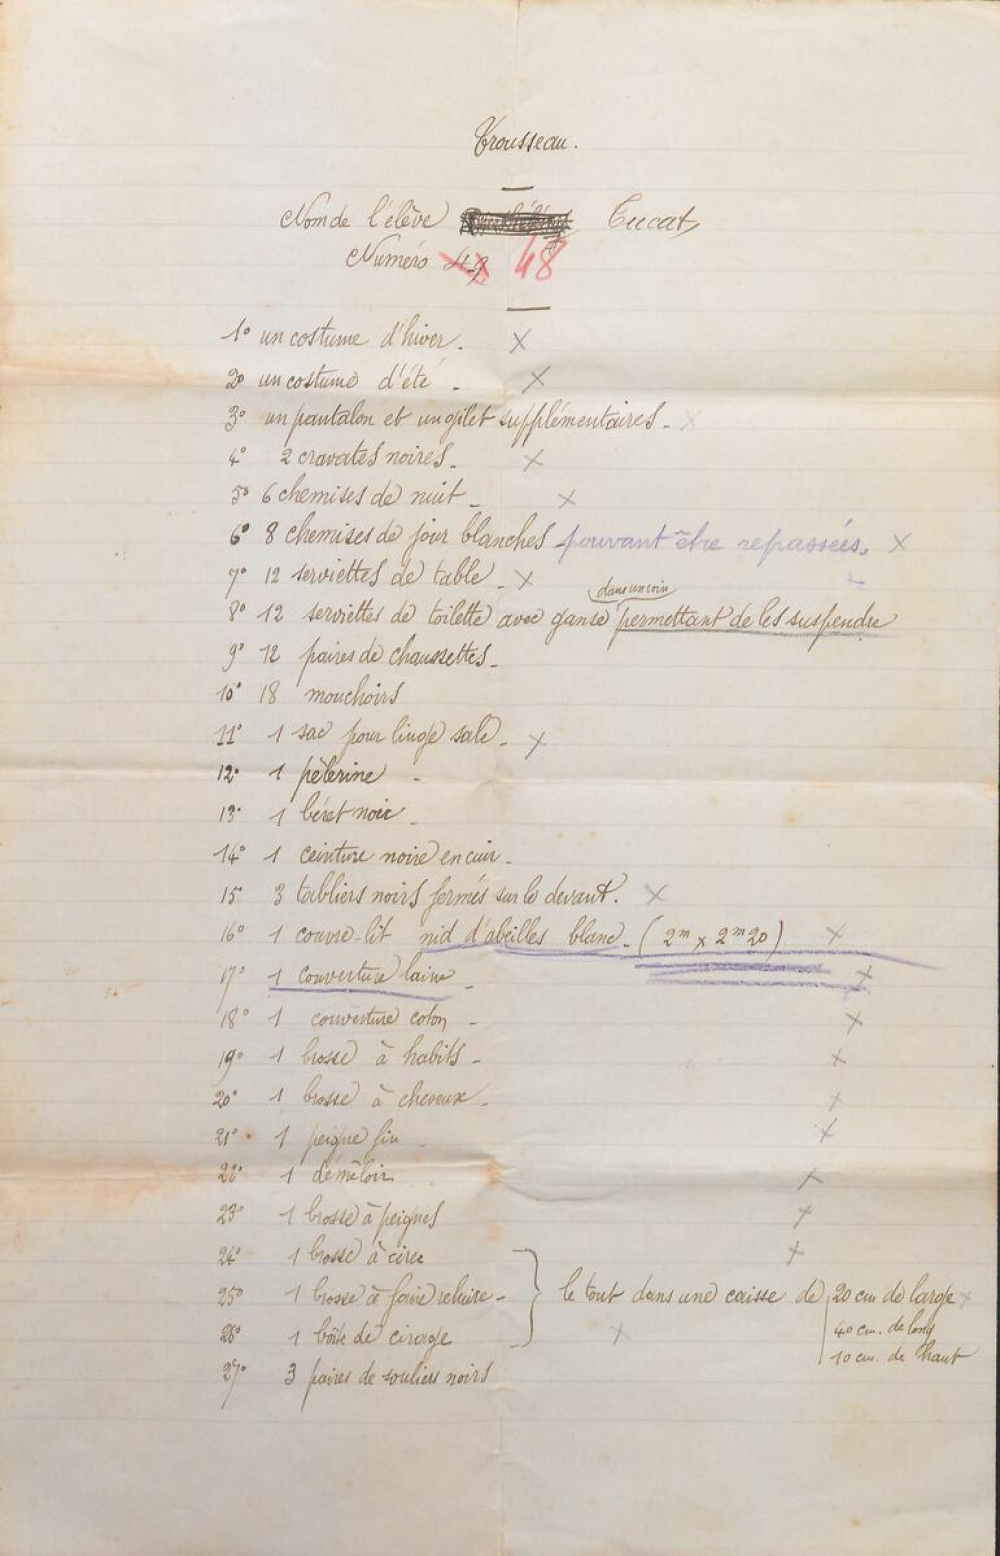 Trousseau.
Nom de l'élève Cucat
Numéro 49 48
1° un costume d'hiver. X
2° un costume d'été. X
3° un pantalon et un gilet supplémentaires. X
4° 2 cravates noires. X
5° 6 chemises de nuit. X
6° 8 chemises de jour blanches pouvant être repassées. X
7° 12 serviettes de table. X
dans un coin
8° 12 serviettes de toilette avec ganse permettant de les suspendre
9° 12 paires de chaussettes.
10° 18 mouchoirs
11° 1 sac pour linge sale. X
12° 1 pèlerine.
13° 1 béret noir.
14° 1 ceinture noire en cuir.
15° 3 tabliers noirs fermés sur le devant. X
16° 1 couvre-lit nid d'abeilles blanc. (2m x 2m20) X
17° 1 couverture laine. X
18° 1 couverture coton. X
19° 1 brosse à habits. X
20° 1 brosse à cheveux. X
21° 1 peigne fin. X
22° 1 démêloir X
23° 1 brosse à peignes X
24° 1 brosse à cirer X
25° 1 brosse à faire reluire. le tout dans une caisse de 20 cm de large X
26° 1 boîte de cirage X 40 cm. de long
10 cm. de haut
27° 3 paires de souliers noirs